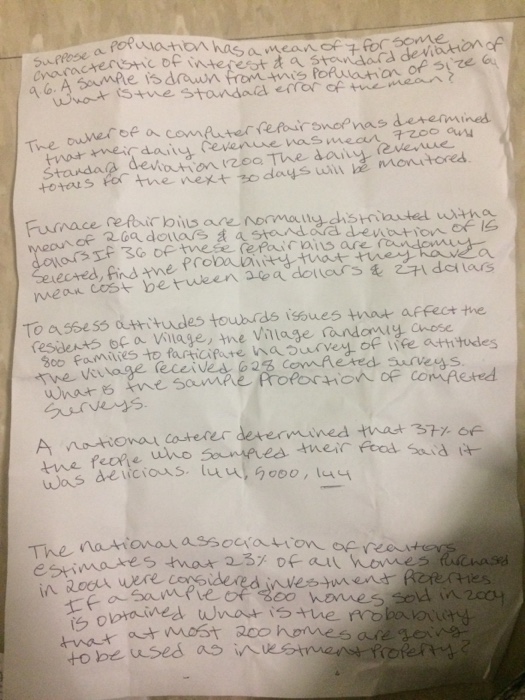 Suppose a population has a mean of 7 for some
characteristic of interest & a standard deviation of
9.6. A sample is drawn from this population of size 64
What is the standard error of the mean?
The owner of a computer repair shop has determined
that their daily revenue has mean 7200 and
Standard deviation 1200 The daily revenue
totals for the next 30 days will be monitored.
Furnace repair bills are normally distributed with a
mean of 269 dollars & a standard deviation of 15
dollars If 36 of these repair bills are randomly
selected, find the probability that they have a
mean cost between 269 dollars & 271 dollars
To assess attitudes towards issues that affect the
residents of a village, the village randomly chose
800 families to participate in a survey of life attitudes
The village received 628 completed surveys.
What is the sample proportion of completed
surveys.
A national caterer determined that 37% of
the people who sampled their food said it
was delicious. 144, 5000, 144
The national association of realtors
estimates that 23% of all homes purchased
in 2004 were considered investment properties
If a sample of 800 homes sold in 2004
is obtained what is the probability
that at most 200 homes are going
to be used as investment property?